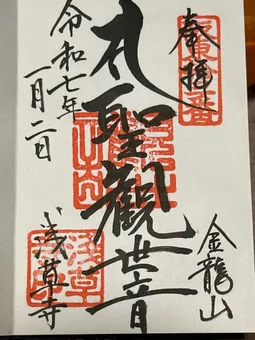 奉拝
聖觀世音
金龍山
浅草寺
令和七年
一月二日